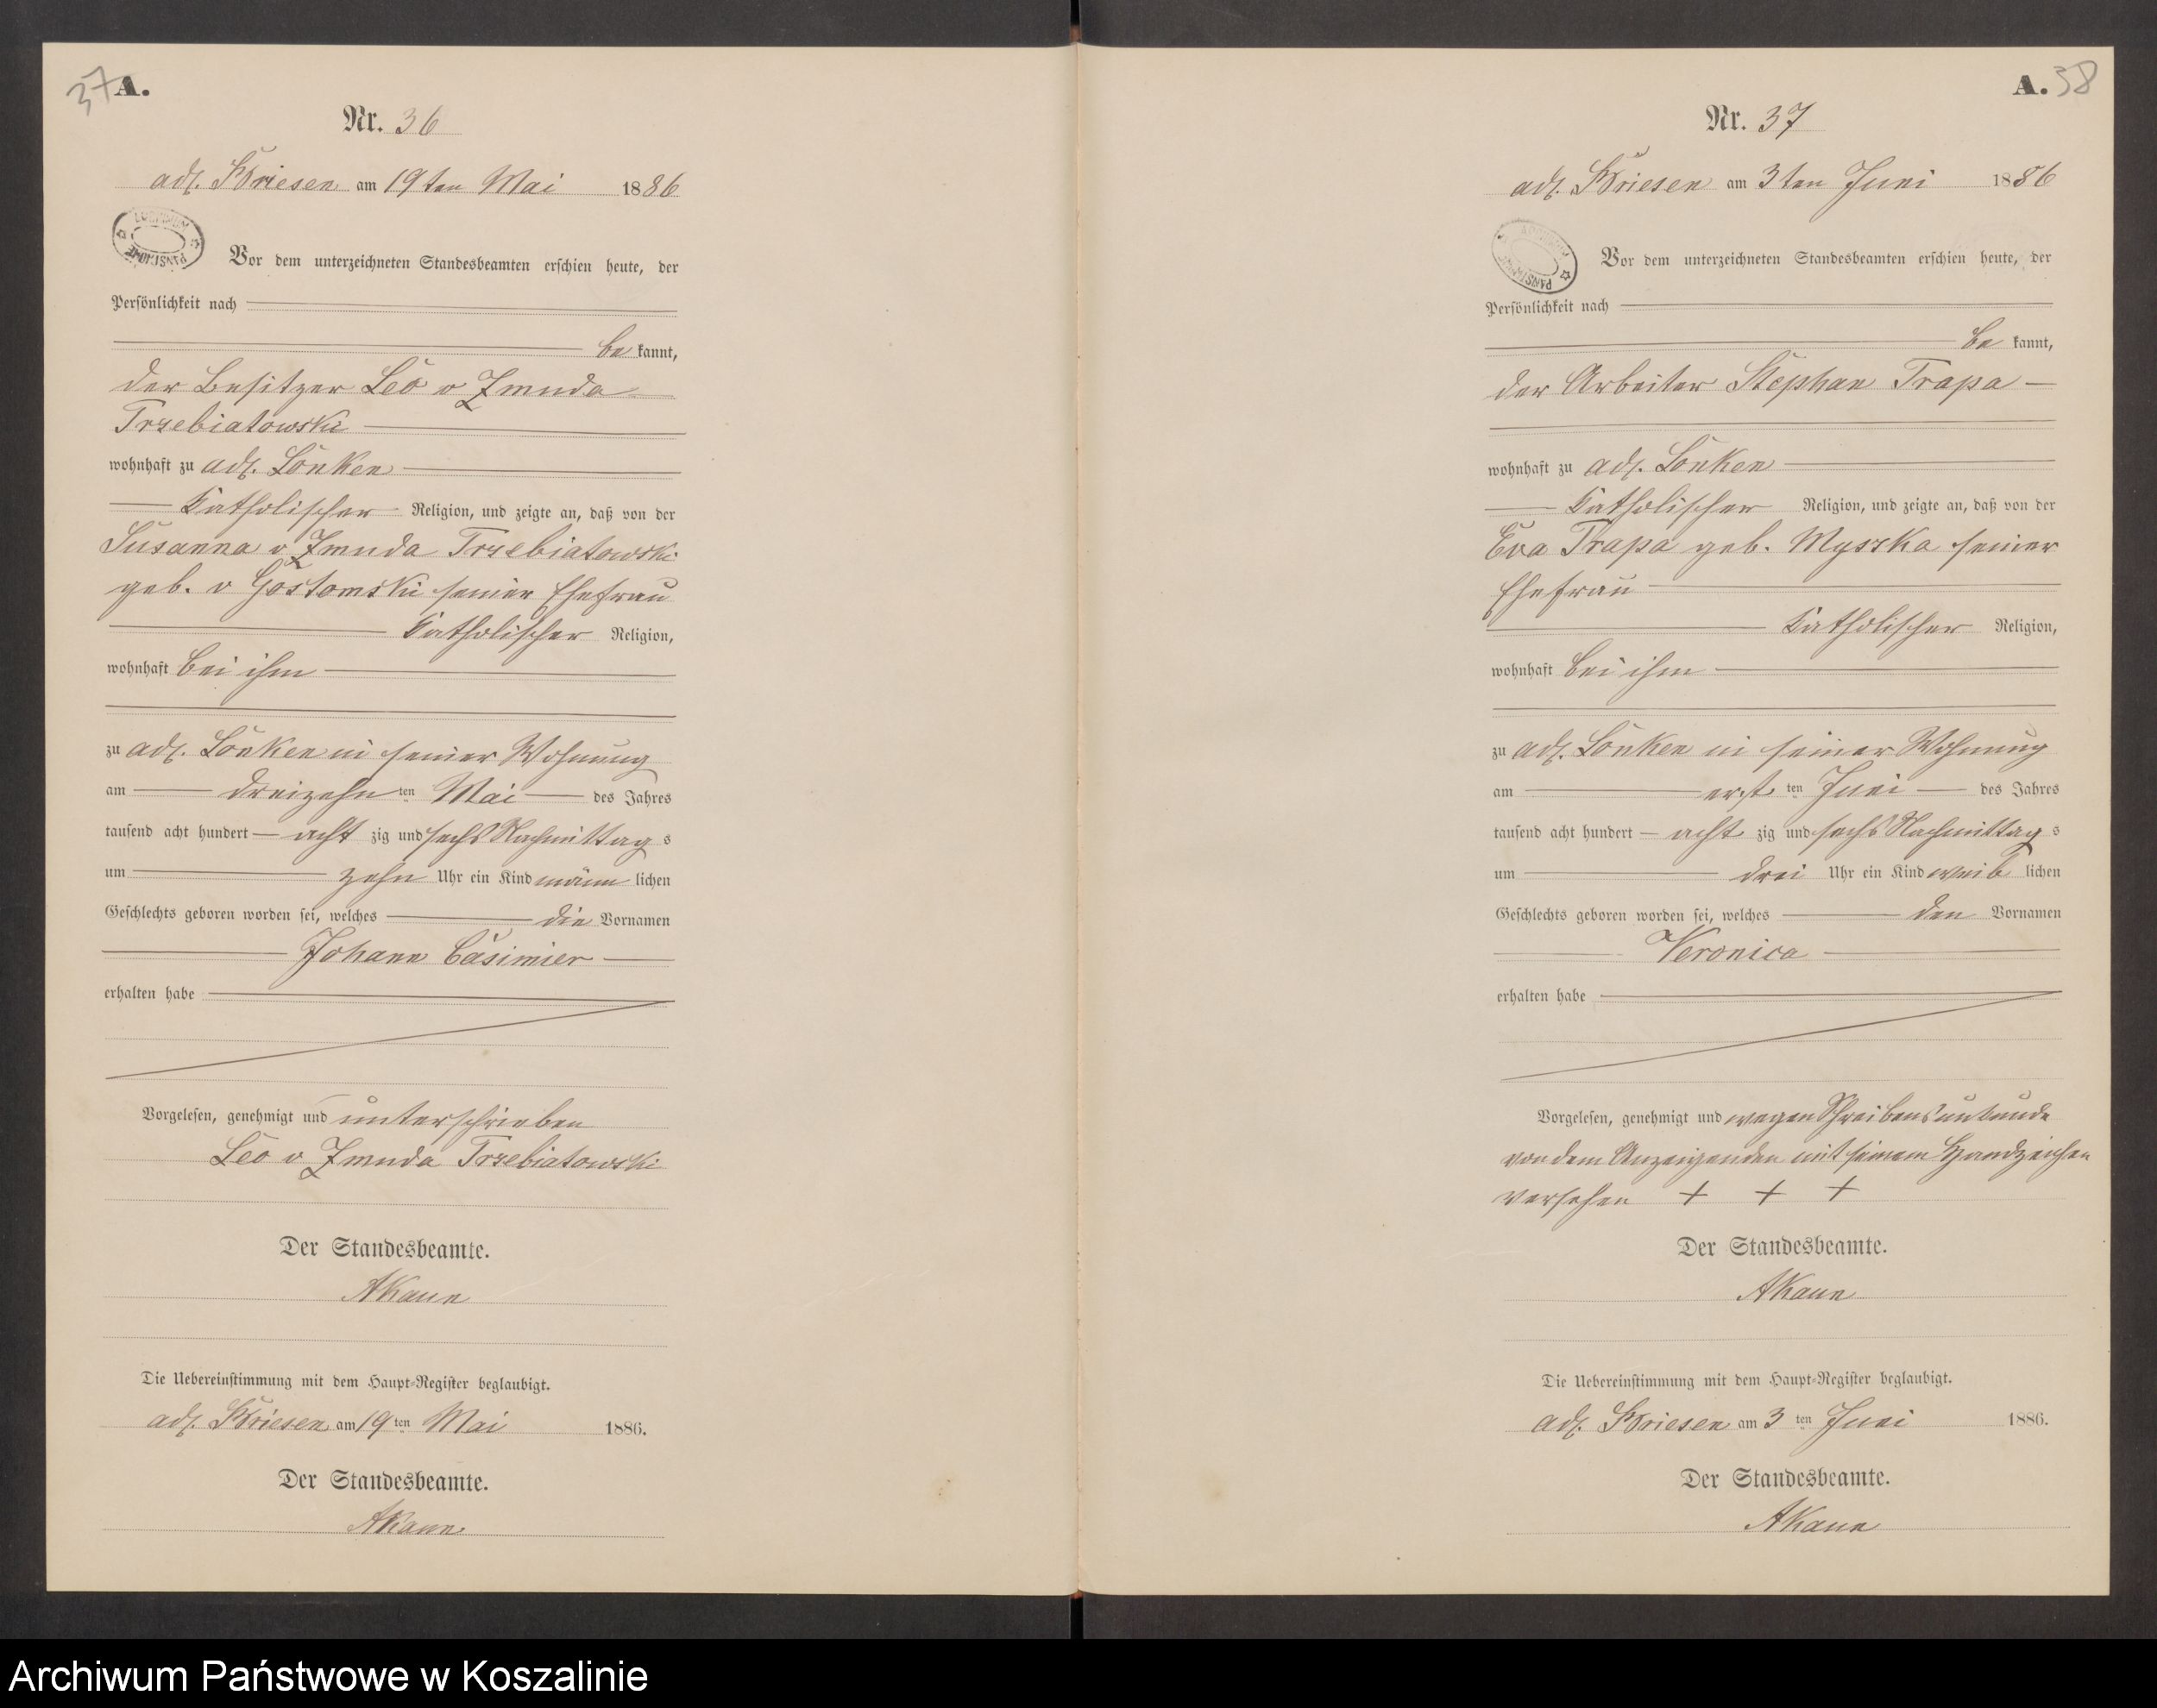 37
A.
Nr. 36
adl. Briesen am 19ten Mai 1886
ARCHIWUM
PAŃSTWOWE
Vor dem unterzeichneten Standesbeamten erschien heute, der
Persönlichkeit nach
be kannt,
der Besitzer Leo v Zmuda
Trzebiatowski
wohnhaft zu adl. Lonken
katholischer Religion, und zeigte an, daß von der
Susanna v Zmuda Trzebiatowski
geb. v Gostomski seiner Ehefrau
katholischer Religion,
wohnhaft bei ihm
zu adl. Lonken in seiner Wohnung
am dreizehn ten Mai des Jahres
tausend acht hundert acht zig und sechs Nachmittag s
um zehn Uhr ein Kind männ lichen
Geschlechts geboren worden sei, welches die Vornamen
Johann Casimier
erhalten habe
Vorgelesen, genehmigt und unterschrieben
Leo v Zmuda Trzebiatowski
Der Standesbeamte.
Die Uebereinstimmung mit dem Haupt-Register beglaubigt.
adl. Briesen am 19 ten Mai 1886.
Der Standesbeamte.
A. 38
Nr. 37
adl. Briesen am 3ten Juni 1886
PAŃSTWOWE
Vor dem unterzeichneten Standesbeamten erschien heute, der
Persönlichkeit nach
be kannt,
der Arbeiter Stephan Trapa
wohnhaft zu adl. Lonken
katholischer Religion, und zeigte an, daß von der
Eva Trapa geb. Myszka seiner
Ehefrau
katholischer Religion,
wohnhaft bei ihm
zu adl. Lonken in seiner Wohnung
am erst ten Juni des Jahres
tausend acht hundert acht zig und sechs Nachmittag s
um drei Uhr ein Kind weib lichen
Geschlechts geboren worden sei, welches den Vornamen
Veronica
erhalten habe
Vorgelesen, genehmigt und wegen Schreibensunkunde
von dem Anzeigenden mit seinem Handzeichen
versehen + + +
Der Standesbeamte.
Die Uebereinstimmung mit dem Haupt-Register beglaubigt.
adl. Briesen am 3 ten Juni 1886.
Der Standesbeamte.
Archiwum Państwowe w Koszalinie